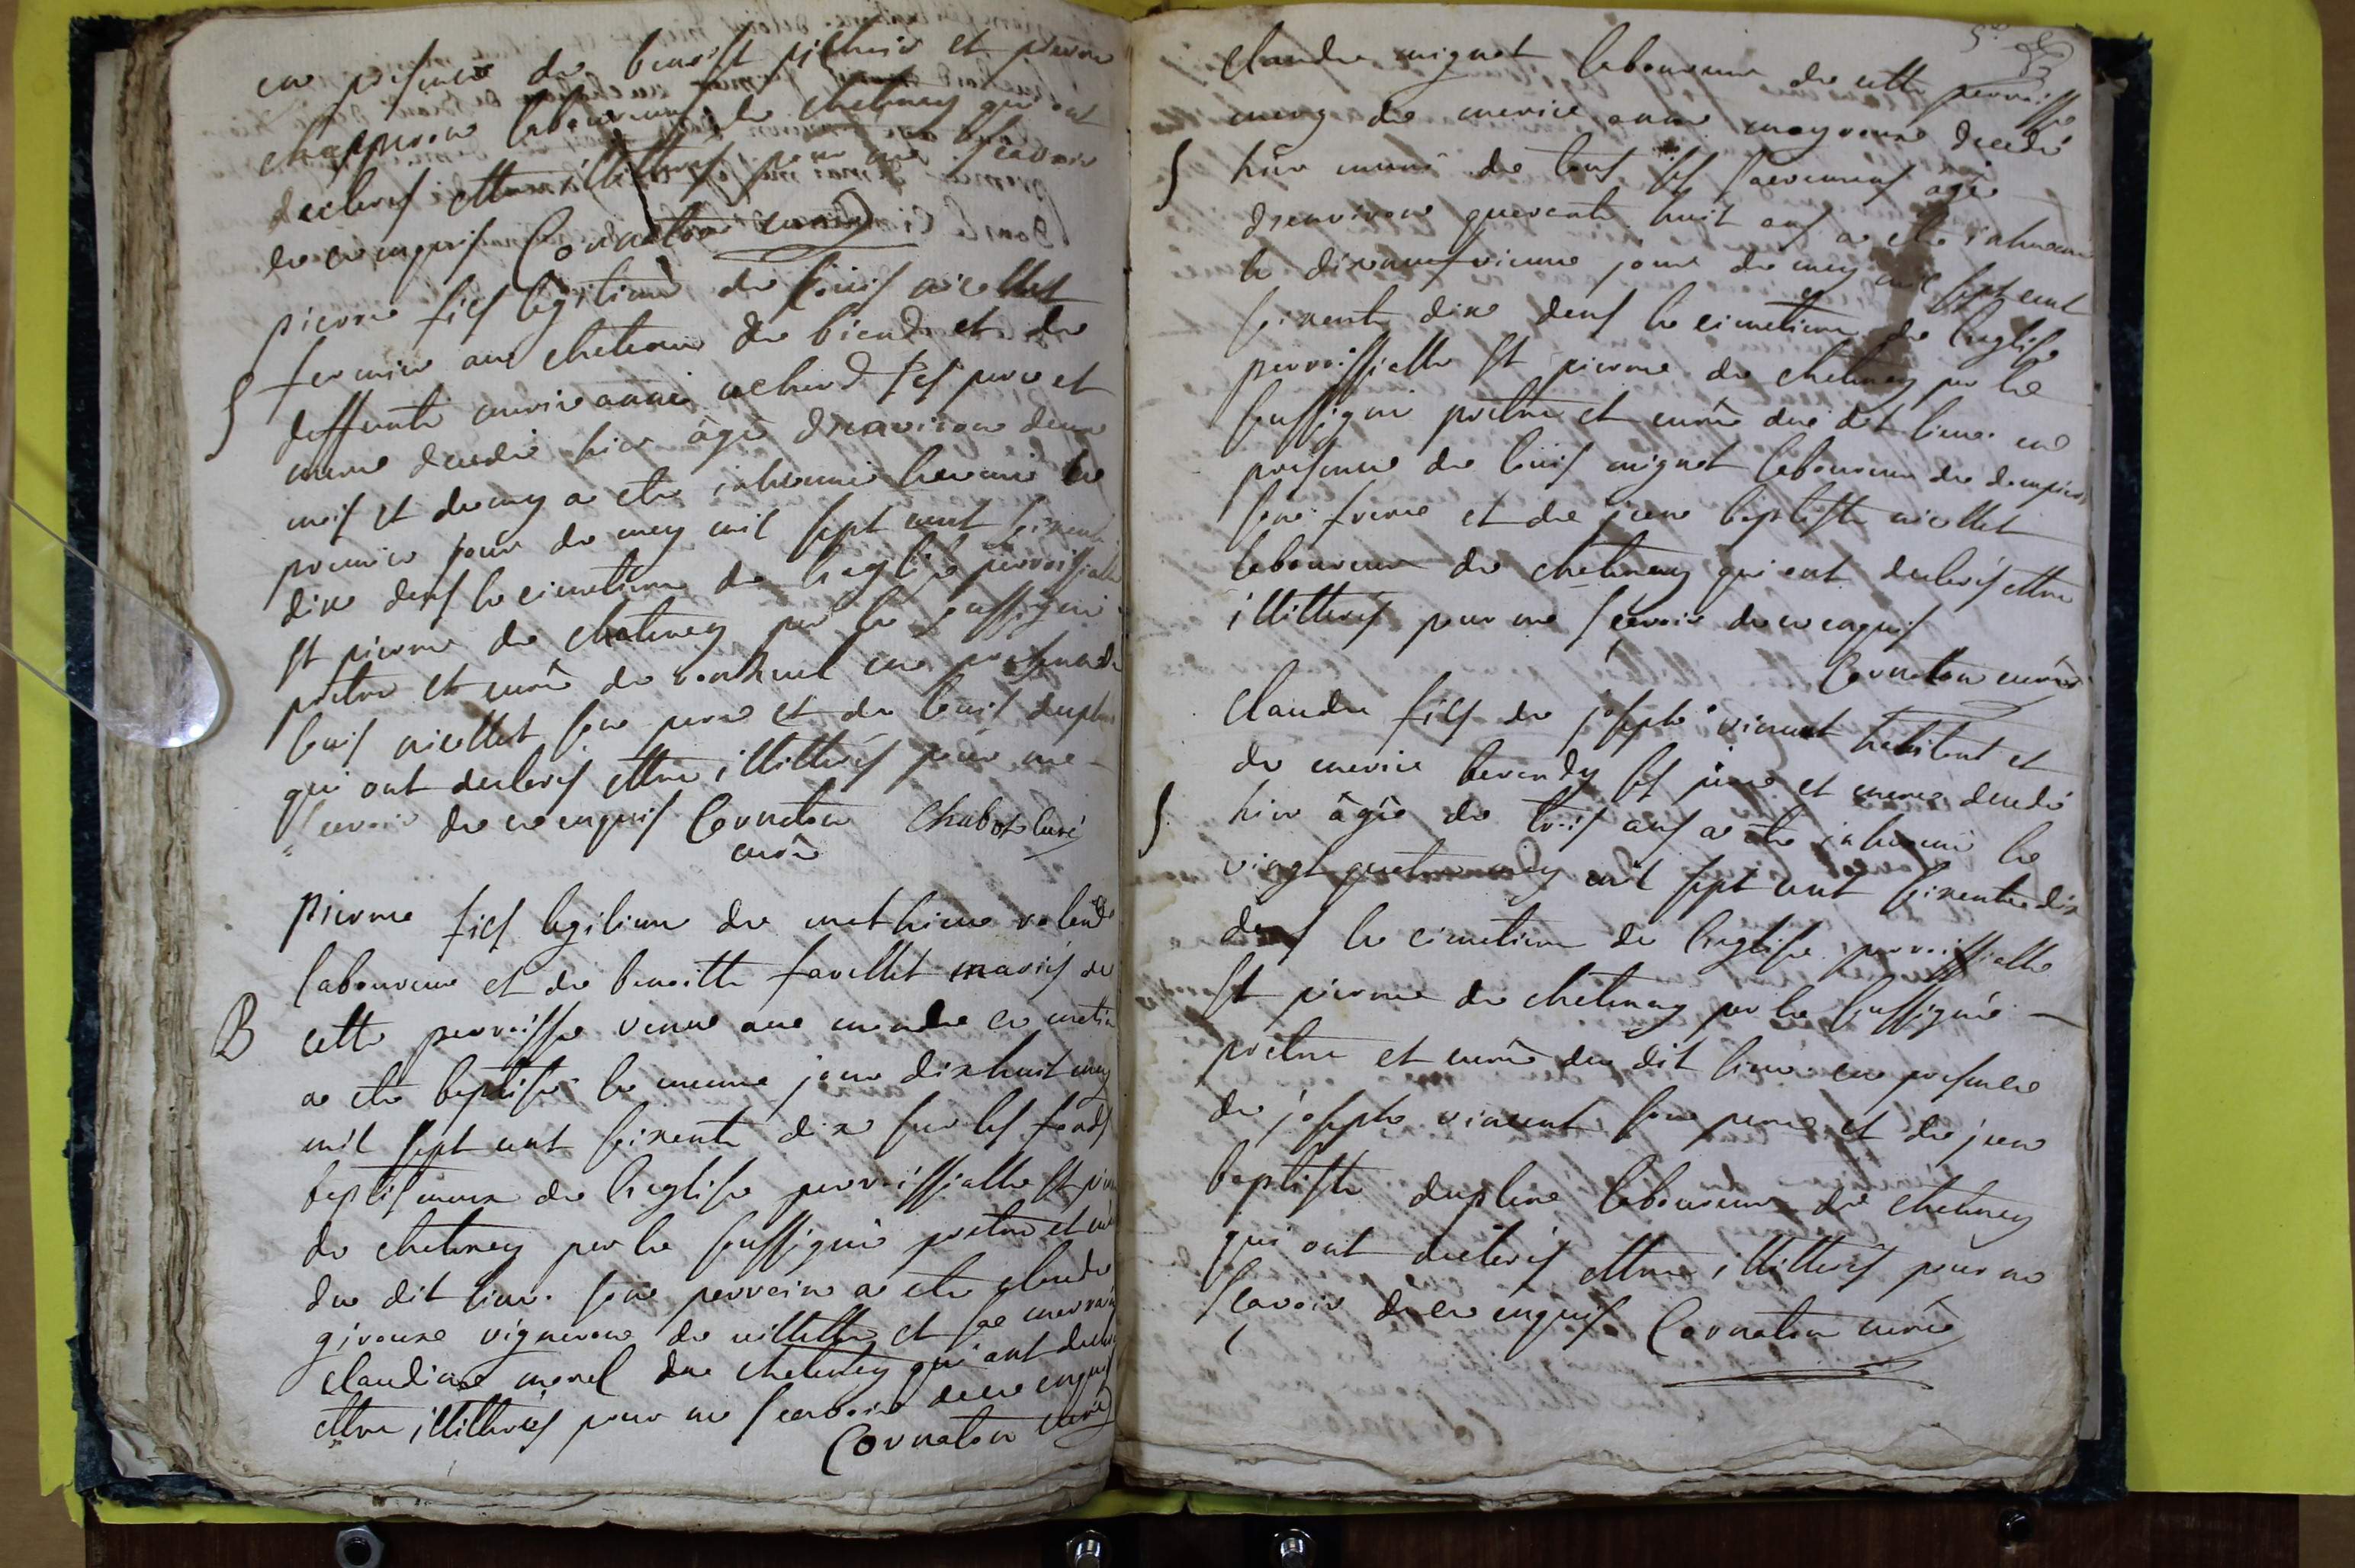 en presence de benoist pichuis et pierre
chappiron laboureurs de chatenay qui ont
declerés ettre illitterés pour ne scavoir
de ce enquis Cornaton curé
pierre fils legitime de louis nicollet
fermier au chateau de biend et de
deffunte marianne achard ses pere et
mere decedé hier âgé denviron deux
S
mois et demy a ete inhumé le
premier jour de may mil sept cent soixente
dixe dens le cimetiere de leglise perroissialle
st pierre de chatenay per le sussigné
prêtre et curé de en presence de
louis nicollet son pere et de louis duplan
qui ont declerés ettre illitterés pour ne
scavoir de ce enquis Cornaton Chabot curé
curé
pierre fils legitime de mathieu
laboureur et de benoitte favellet mariés de
B
cette perroisse venue au monde ce matin
a ete beptisé le meme jour dixhuit may
mil sept cent soixente dixe sur les fonds
beptismeux de leglise perroissialle st pierre
de chatenay per le sussigné prêtre et curé
du dit lieu. son perrein a ete claude
girouse vigneron de villette et sa merraine
claudine morel de chatenay qui ont declerés
ettre illitterés pour ne scavoir de ce enquis
Cornaton curé
5e
Claude mignot laboureur de cette perroisse
mery de merie anne mayronne decedé
S
hier muni de tous ses sacremens âgé
denviron quarente huit ans a ete inhumé
le dixneufvieme jour de may mil sept cent
soixente dixe dens le cimetiere de leglise
perroissialle st pierre de chatenay per le
sussigné prêtre et curé du dit lieu. en
presence de louis mignot laboureur de dompierre
son frere et de jean beptiste nicollet
laboureur de chatenay qui ont declerés ettre
illitterés pour ne scavoir de ce enquis
Cornaton curé
Claude fils de joseph vincent habitent et
de merie ses pere et mere decedé
S
hier âgé de trois ans a ete inhumé le
vingt quatre may mil sept cent soixente dix
dens le cimetiere de leglise perroissialle
st pierre de chatenay per le sussigné
prêtre et curé du dit lieu. en presence
de joseph vincent son pere et de jean
beptiste duplan laboureur de chatenay
qui ont declerés ettre illitterés pour ne
scavoir de ce enquis. Cornaton curé